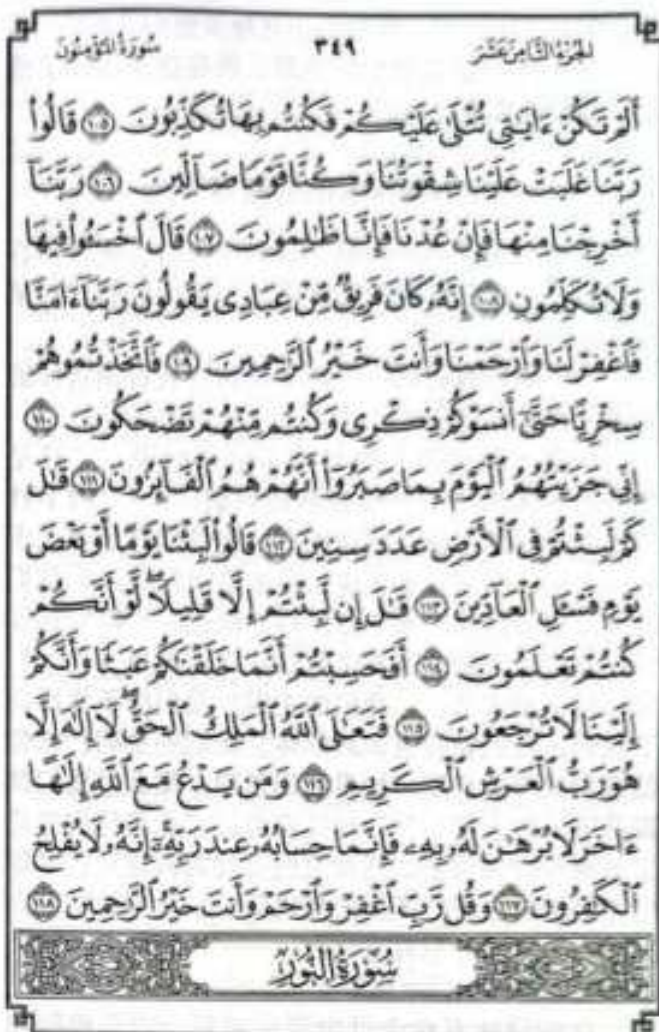 الجزء الثامن عشر ٣٤٩ سورة المؤمنون
أَلَمْ تَكُنْ ءَايَٰتِى تُتْلَىٰ عَلَيْكُمْ فَكُنتُم بِهَا تُكَذِّبُونَ ١٠٥ قَالُوا۟
رَبَّنَا غَلَبَتْ عَلَيْنَا شِقْوَتُنَا وَكُنَّا قَوْمًا ضَآلِّينَ ١٠٦ رَبَّنَآ
أَخْرِجْنَا مِنْهَا فَإِنْ عُدْنَا فَإِنَّا ظَٰلِمُونَ ١٠٧ قَالَ ٱخْسَـُٔوا۟ فِيهَا
وَلَا تُكَلِّمُونِ ١٠٨ إِنَّهُۥ كَانَ فَرِيقٌ مِّنْ عِبَادِى يَقُولُونَ رَبَّنَآ ءَامَنَّا
فَٱغْفِرْ لَنَا وَٱرْحَمْنَا وَأَنتَ خَيْرُ ٱلرَّٰحِمِينَ ١٠٩ فَٱتَّخَذْتُمُوهُمْ
سِخْرِيًّا حَتَّىٰٓ أَنسَوْكُمْ ذِكْرِى وَكُنتُم مِّنْهُمْ تَضْحَكُونَ ١١٠
إِنِّى جَزَيْتُهُمُ ٱلْيَوْمَ بِمَا صَبَرُوٓا۟ أَنَّهُمْ هُمُ ٱلْفَآئِزُونَ ١١١ قَٰلَ
كَمْ لَبِثْتُمْ فِى ٱلْأَرْضِ عَدَدَ سِنِينَ ١١٢ قَالُوا۟ لَبِثْنَا يَوْمًا أَوْ بَعْضَ
يَوْمٍ فَسْـَٔلِ ٱلْعَآدِّينَ ١١٣ قَٰلَ إِن لَّبِثْتُمْ إِلَّا قَلِيلًا ۖ لَّوْ أَنَّكُمْ
كُنتُمْ تَعْلَمُونَ ١١٤ أَفَحَسِبْتُمْ أَنَّمَا خَلَقْنَٰكُمْ عَبَثًا وَأَنَّكُمْ
إِلَيْنَا لَا تُرْجَعُونَ ١١٥ فَتَعَٰلَى ٱللَّهُ ٱلْمَلِكُ ٱلْحَقُّ ۖ لَآ إِلَٰهَ إِلَّا
هُوَ رَبُّ ٱلْعَرْشِ ٱلْكَرِيمِ ١١٦ وَمَن يَدْعُ مَعَ ٱللَّهِ إِلَٰهًا
ءَاخَرَ لَا بُرْهَٰنَ لَهُۥ بِهِۦ فَإِنَّمَا حِسَابُهُۥ عِندَ رَبِّهِۦٓ ۚ إِنَّهُۥ لَا يُفْلِحُ
ٱلْكَٰفِرُونَ ١١٧ وَقُل رَّبِّ ٱغْفِرْ وَٱرْحَمْ وَأَنتَ خَيْرُ ٱلرَّٰحِمِينَ ١١٨
سُورَةُ النُّورِ